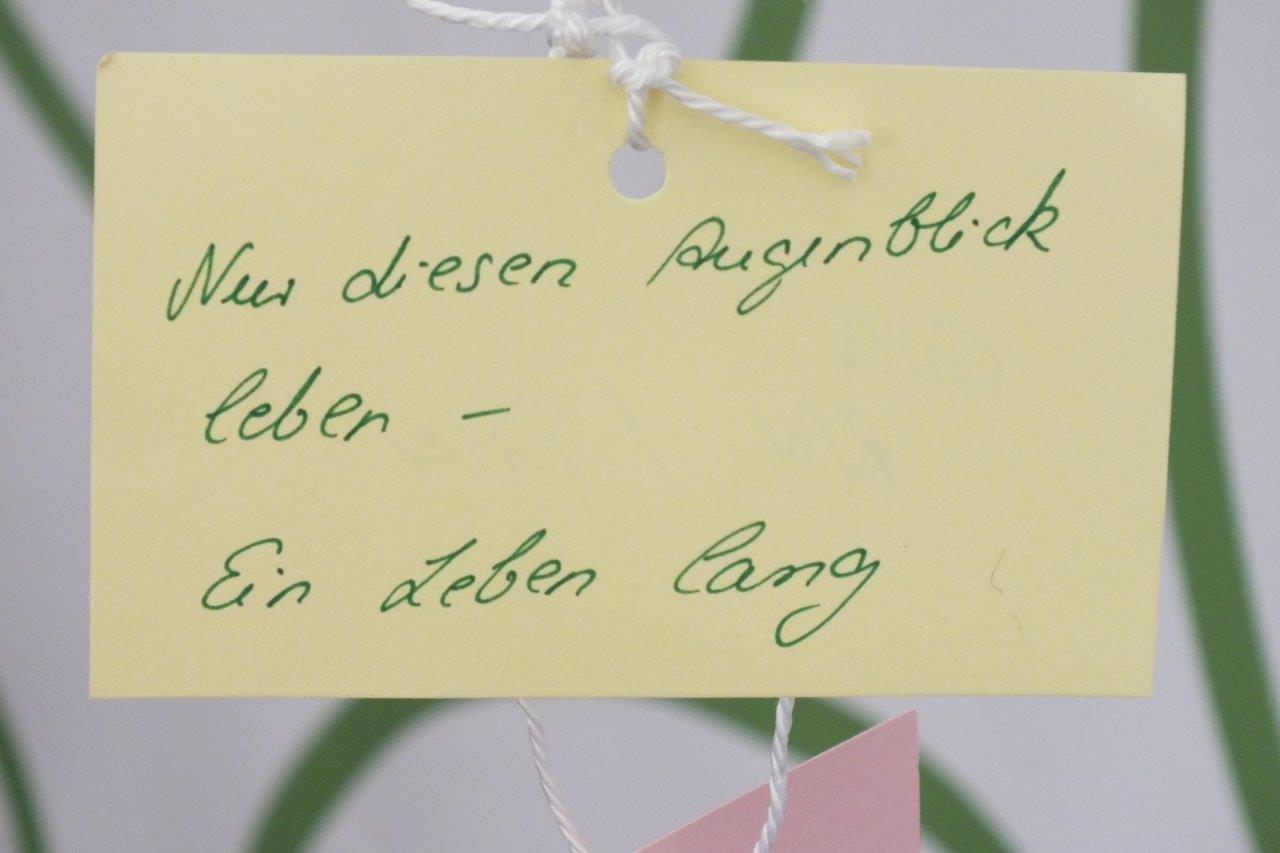 Nur diesen Augenblick
leben –
Ein Leben lang